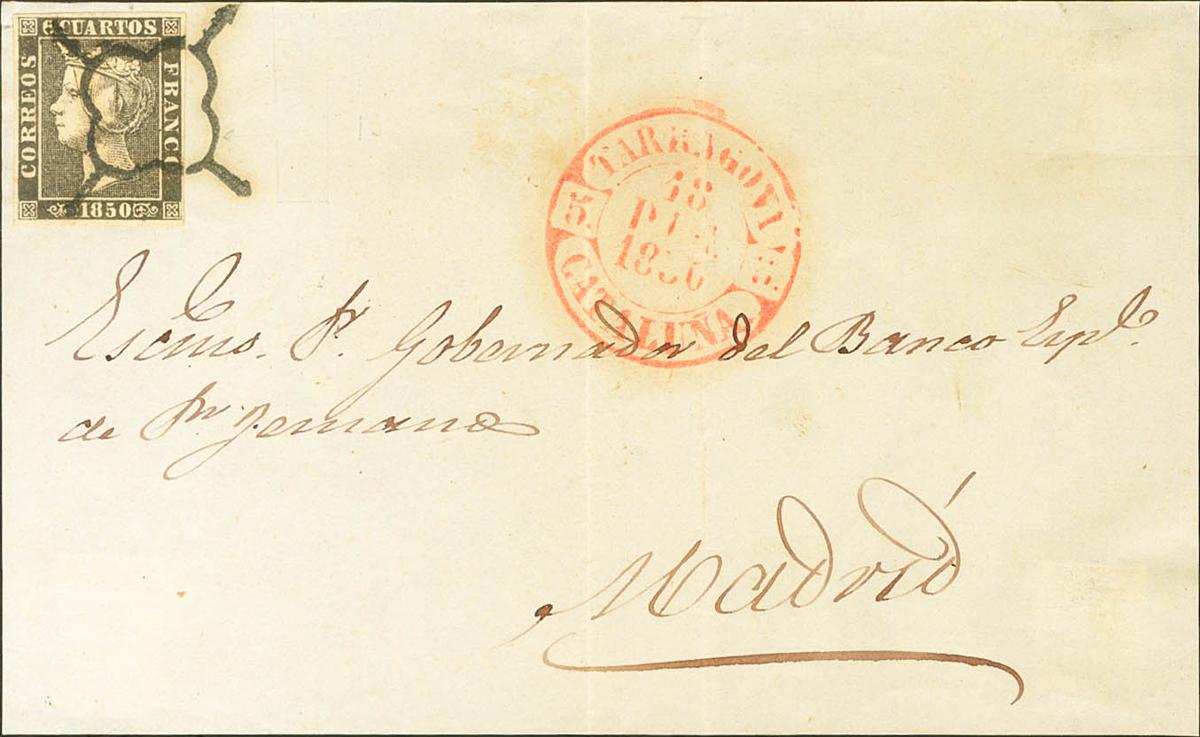 6 CUARTOS
CORREOS
FRANCO
1850
TARRAGONA
18
DIC
1850
CATALUÑA.
Escmo. Sr. Gobernador del Banco Espl.
de Sn. Fernando
Madrid